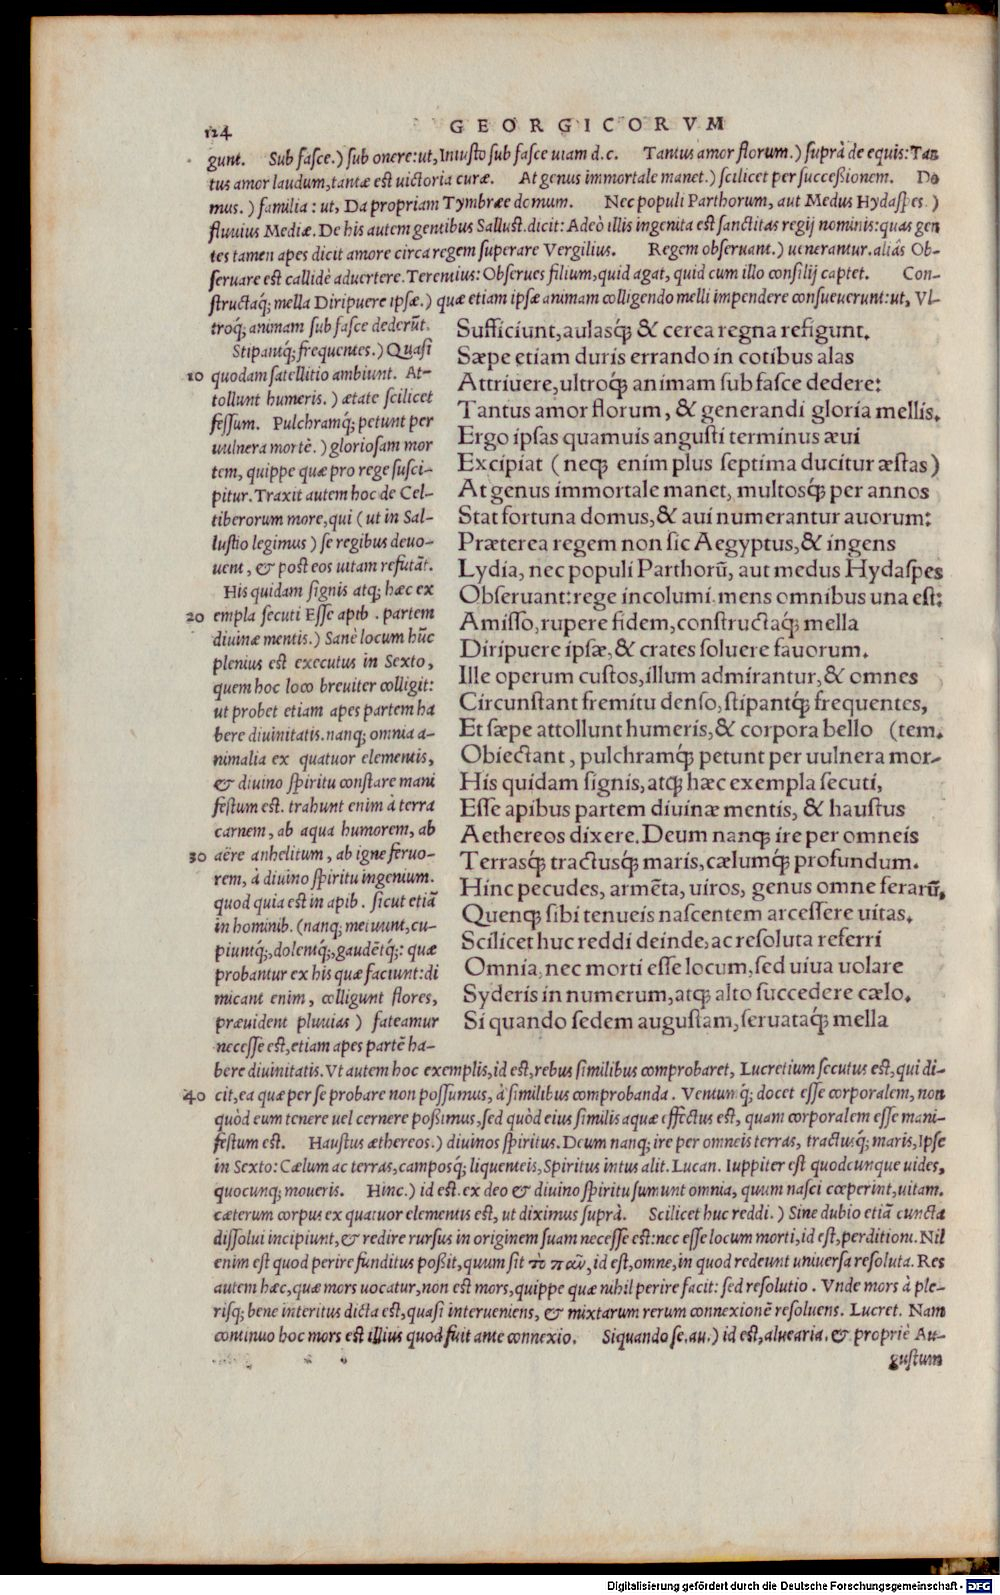 124
GEORGICORVM
gunt. Sub fasce.) sub onere:ut, Iniusto sub fasce uiam d.c. Tantus amor florum.) suprà de equis:Tan
tus amor laudum,tantæ est uictoria curæ. At genus immortale manet.) scilicet per successionem. Do
mus.) familia : ut, Da propriam Tymbræe domum. Nec populi Parthorum, aut Medus Hydaspes.)
fluuius Mediæ. De his autem gentibus Sallust.dicit: Adeò illis ingenita est sanctitas regij nominis:quas gen
tes tamen apes dicit amore circa regem superare Vergilius. Regem obseruant.) uenerantur.aliâs Ob-
seruare est callidè aduertere. Terentius: Obserues filium,quid agat, quid cum illo consilij captet. Con-
structaq́; mella Diripuere ipsæ.) quæ etiam ipsæ animam colligendo melli impendere consueuerunt:ut, Vl-
troq́; animam sub fasce dederũt.
Stipantq́; frequentes.) Quasi
10 quodam satellitio ambiunt. At-
tollunt humeris.) ætate scilicet
fessum. Pulchramq́; petunt per
uulnera mortẽ.) gloriosam mor
tem, quippe quæ pro rege susci-
pitur. Traxit autem hoc de Cel-
tiberorum more,qui (ut in Sal-
lustio legimus) se regibus deuo-
uent, & post eos uitam refutãt.
His quidam signis atq; hæc ex
20 empla secuti Esse apib. partem
diuinæ mentis.) Sanè locum hũc
plenius est executus in Sexto,
quem hoc loco breuiter colligit:
ut probet etiam apes partem ha
bere diuinitatis.nanq; omnia a-
nimalia ex quatuor elementis,
& diuino spiritu constare mani
festum est. trahunt enim à terra
carnem, ab aqua humorem, ab
30 aëre anhelitum, ab igne feruo-
rem, à diuino spiritu ingenium.
quod quia est in apib. sicut etiã
in hominib. (nanq; metuunt,cu-
piuntq́;,dolentq́;,gaudẽtq́;: quæ
probantur ex his quæ faciunt:di
micant enim, colligunt flores,
præuident pluuias) fateamur
necesse est,etiam apes partẽ ha-
Sufficiunt,aulasq́; & cerea regna refigunt.
Sæpe etiam duris errando in cotibus alas
Attriuere,ultroq́; animam sub fasce dedere:
Tantus amor florum, & generandi gloria mellis.
Ergo ipsas quamuis angusti terminus æui
Excipiat (neq; enim plus septima ducitur æstas)
At genus immortale manet, multosq́; per annos
Stat fortuna domus,& aui numerantur auorum:
Præterea regem non sic Aegyptus,& ingens
Lydia, nec populi Parthorũ, aut medus Hydaspes
Obseruant:rege incolumi mens omnibus una est:
Amisso,rupere fidem,constructaq́; mella
Diripuere ipsæ,& crates soluere fauorum.
Ille operum custos,illum admirantur,& omnes
Circunstant fremitu denso,stipantq́; frequentes,
Et sæpe attollunt humeris,& corpora bello (tem.
Obiectant, pulchramq́; petunt per uulnera mor-
His quidam signis,atq; hæc exempla secuti,
Esse apibus partem diuinæ mentis, & haustus
Aethereos dixere. Deum nanq; ire per omneis
Terrasq́; tractusq́; maris,cælumq́; profundum.
Hinc pecudes, armẽta, uiros, genus omne ferarũ,
Quenq; sibi tenueis nascentem arcessere uitas.
Scilicet huc reddi deinde,ac resoluta referri
Omnia, nec morti esse locum,sed uiua uolare
Syderis in numerum,atq; alto succedere cælo.
Si quando sedem augustam,seruataq́; mella
bere diuinitatis. Vt autem hoc exemplis,id est,rebus similibus comprobaret, Lucretium secutus est,qui di-
40 cit,ea quæ per se probare non possumus, à similibus comprobanda. Ventumq́; docet esse corporalem, non
quòd eum tenere uel cernere possimus,sed quòd eius similis aquæ effectus est, quam corporalem esse mani-
festum est. Haustus æthereos.) diuinos spiritus. Deum nanq; ire per omneis terras, tractusq́; maris,Ipse
in Sexto: Cælum ac terras,camposq́; liquenteis,Spiritus intus alit. Lucan. Iuppiter est quodcunque uides,
quocunq; moueris. Hinc.) id est.ex deo & diuino spiritu sumunt omnia, quum nasci cœperint,uitam.
cæterum corpus ex quatuor elementis est, ut diximus suprà. Scilicet huc reddi.) Sine dubio etiã cuncta
dissolui incipiunt,& redire rursus in originem suam necesse est:nec esse locum morti,id est,perditioni. Nil
enim est quod perire funditus possit,quum sit τὸ πᾶν,id est,omne,in quod redeunt uniuersa resoluta. Res
autem hæc,quæ mors uocatur,non est mors,quippe quæ nihil perire facit: sed resolutio. Vnde mors à ple-
risq; bene interitus dicta est,quasi interueniens, & mixtarum rerum connexionẽ resoluens. Lucret. Nam
continuo hoc mors est illius quod fuit ante connexio. Siquando se.au.) id est,aluearia. & propriè Au-
gustum
Digitalisierung gefördert durch die Deutsche Forschungsgemeinschaft - DFG